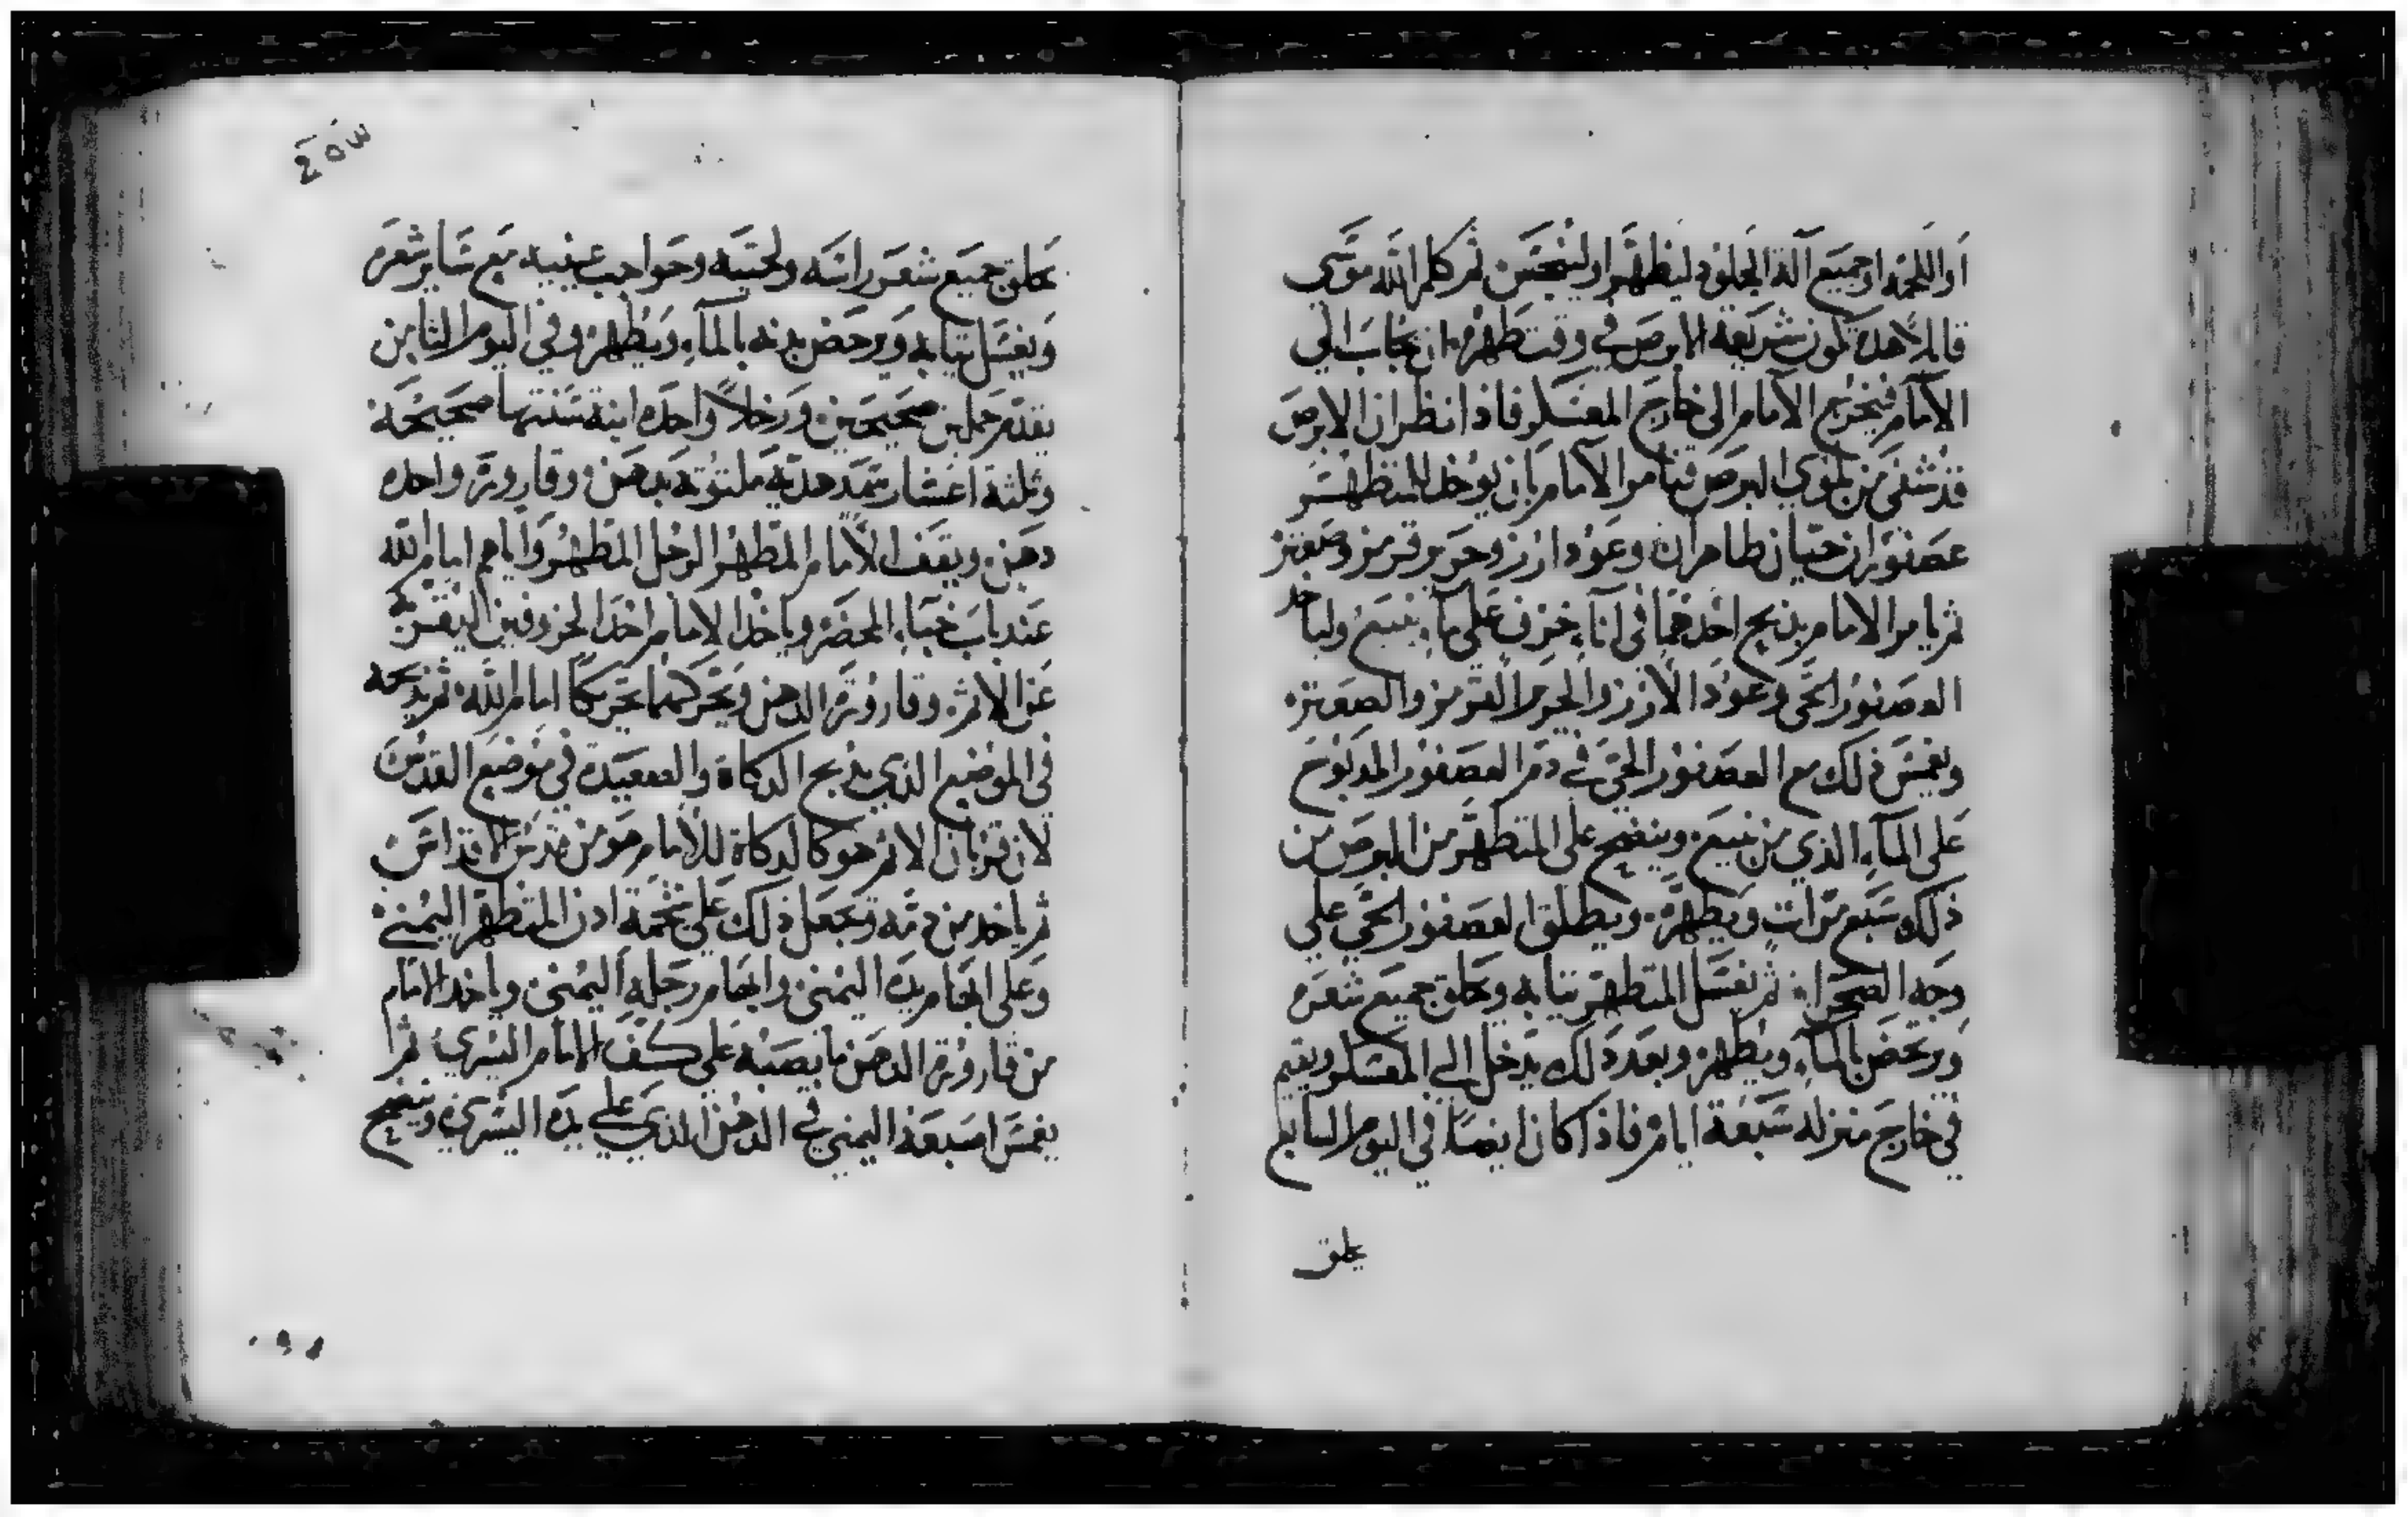 او اللحمه او جميع آلة الجلود ليطهر او ليتنجس ثم كلم الله موسى
قايلاً هده تكون شريعة الابرص في وقت تطهره ان يجاب الى
الآمام فيخرج الآمام الى خارج المعسكر فاذا نظر ان الابرص
قد شفى من بلوي البرص فيامر الآمام بان يوخد للمتطهر
عصفوران حيان طاهران وعود ارز وحرير قرمز وصعتر
ثم يامر الامام بذبح احدهما فى اناء خزف على ماء ينبع ولياخد
العصفور الحى وعود الارز والحرير القرمز والصعتر
ويغمس ذلك مع العصفور الحي في دم العصفور المدبوح
على الماء الذي من نبيع وينضح على المتطهر من البرص من
ذلك سبع مرات ويطهر ويطلق العصفور الحي على
وجه الصحرا ثم يغسل المتطهر تيابه ويحلق جميع شعره
ويرتحض بالماء ويطهر وبعد ذلك يدخل الى المعسكر ويقيم
في خارج منزله سبعة ايام فاذا كان ايضا في اليوم السابع
يحلق
يحلق جميع شعر راسه ولحيته وحواجب عينيه مع ساير شعره
ويغسل تيابه ويرحض بدنه بالماء ويطهر وفي اليوم الثامن
يقدم حملين صحيحين ورخلاً واحده ابنة سنتها صحيحة
وثلثة اعشار سمد هدية ملتوته بدهن وقارورة واحده
دهن ويقف الآمام المطهر الرجل المتطهر واياهم امام الله
عند باب خباء المحضر وياخد الامام احد الخروفين اليقربه
عن الاثم وقارورة الدهن ويحركهما تحريكا امام الله ثم يدبحه
في الموضع الذي يذبح الدكاة والصعيدة في موضع القدس
لان قربان الاثم هو كالدكاة للامام هو من قدس الاقداس
ثم ياخد من دمه ويجعل ذلك على شحمة ادن المتطهر اليمنى
وعلى ابهام يده اليمنى وابهام رجله اليمنى وياخد الامام
من قارورة الدهن ما يصبه على كف الامام اليسري ثم
يغمس اصبعه اليمنى في الدهن الذي على يده اليسري وينضح